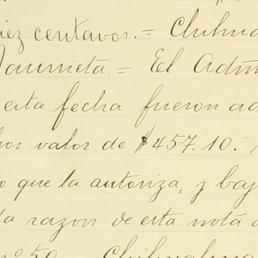 diez centavos. = Chihua
Jaurrieta. = El Adm
esta fecha fueron ad
hos valor de $457.10.-
o que la autoriza, y baj
da razon de esta nota
nº 50 Chihuahua